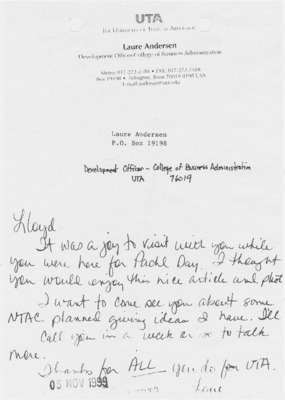 UTA
THE UNIVERSITY OF TEXAS AT ARLINGTON
Laure Andersen
Development Officer-College of Business Administration
Box 19198 • Arlington, Texas 76019 USA
Laure Andersen
P.O. Box 19198
Development Officer - College of Business Administration
UTA 76019
Lloyd,
It was a joy to visit with you while
you were here for Pachl Day. I thought
you would enjoy this nice article and
I want to come see you about some
NTAC planned giving ideas I have. I'll
call you in a week or so to talk
more.
Thanks for ALL you do for UTA.
05 NOV 1999